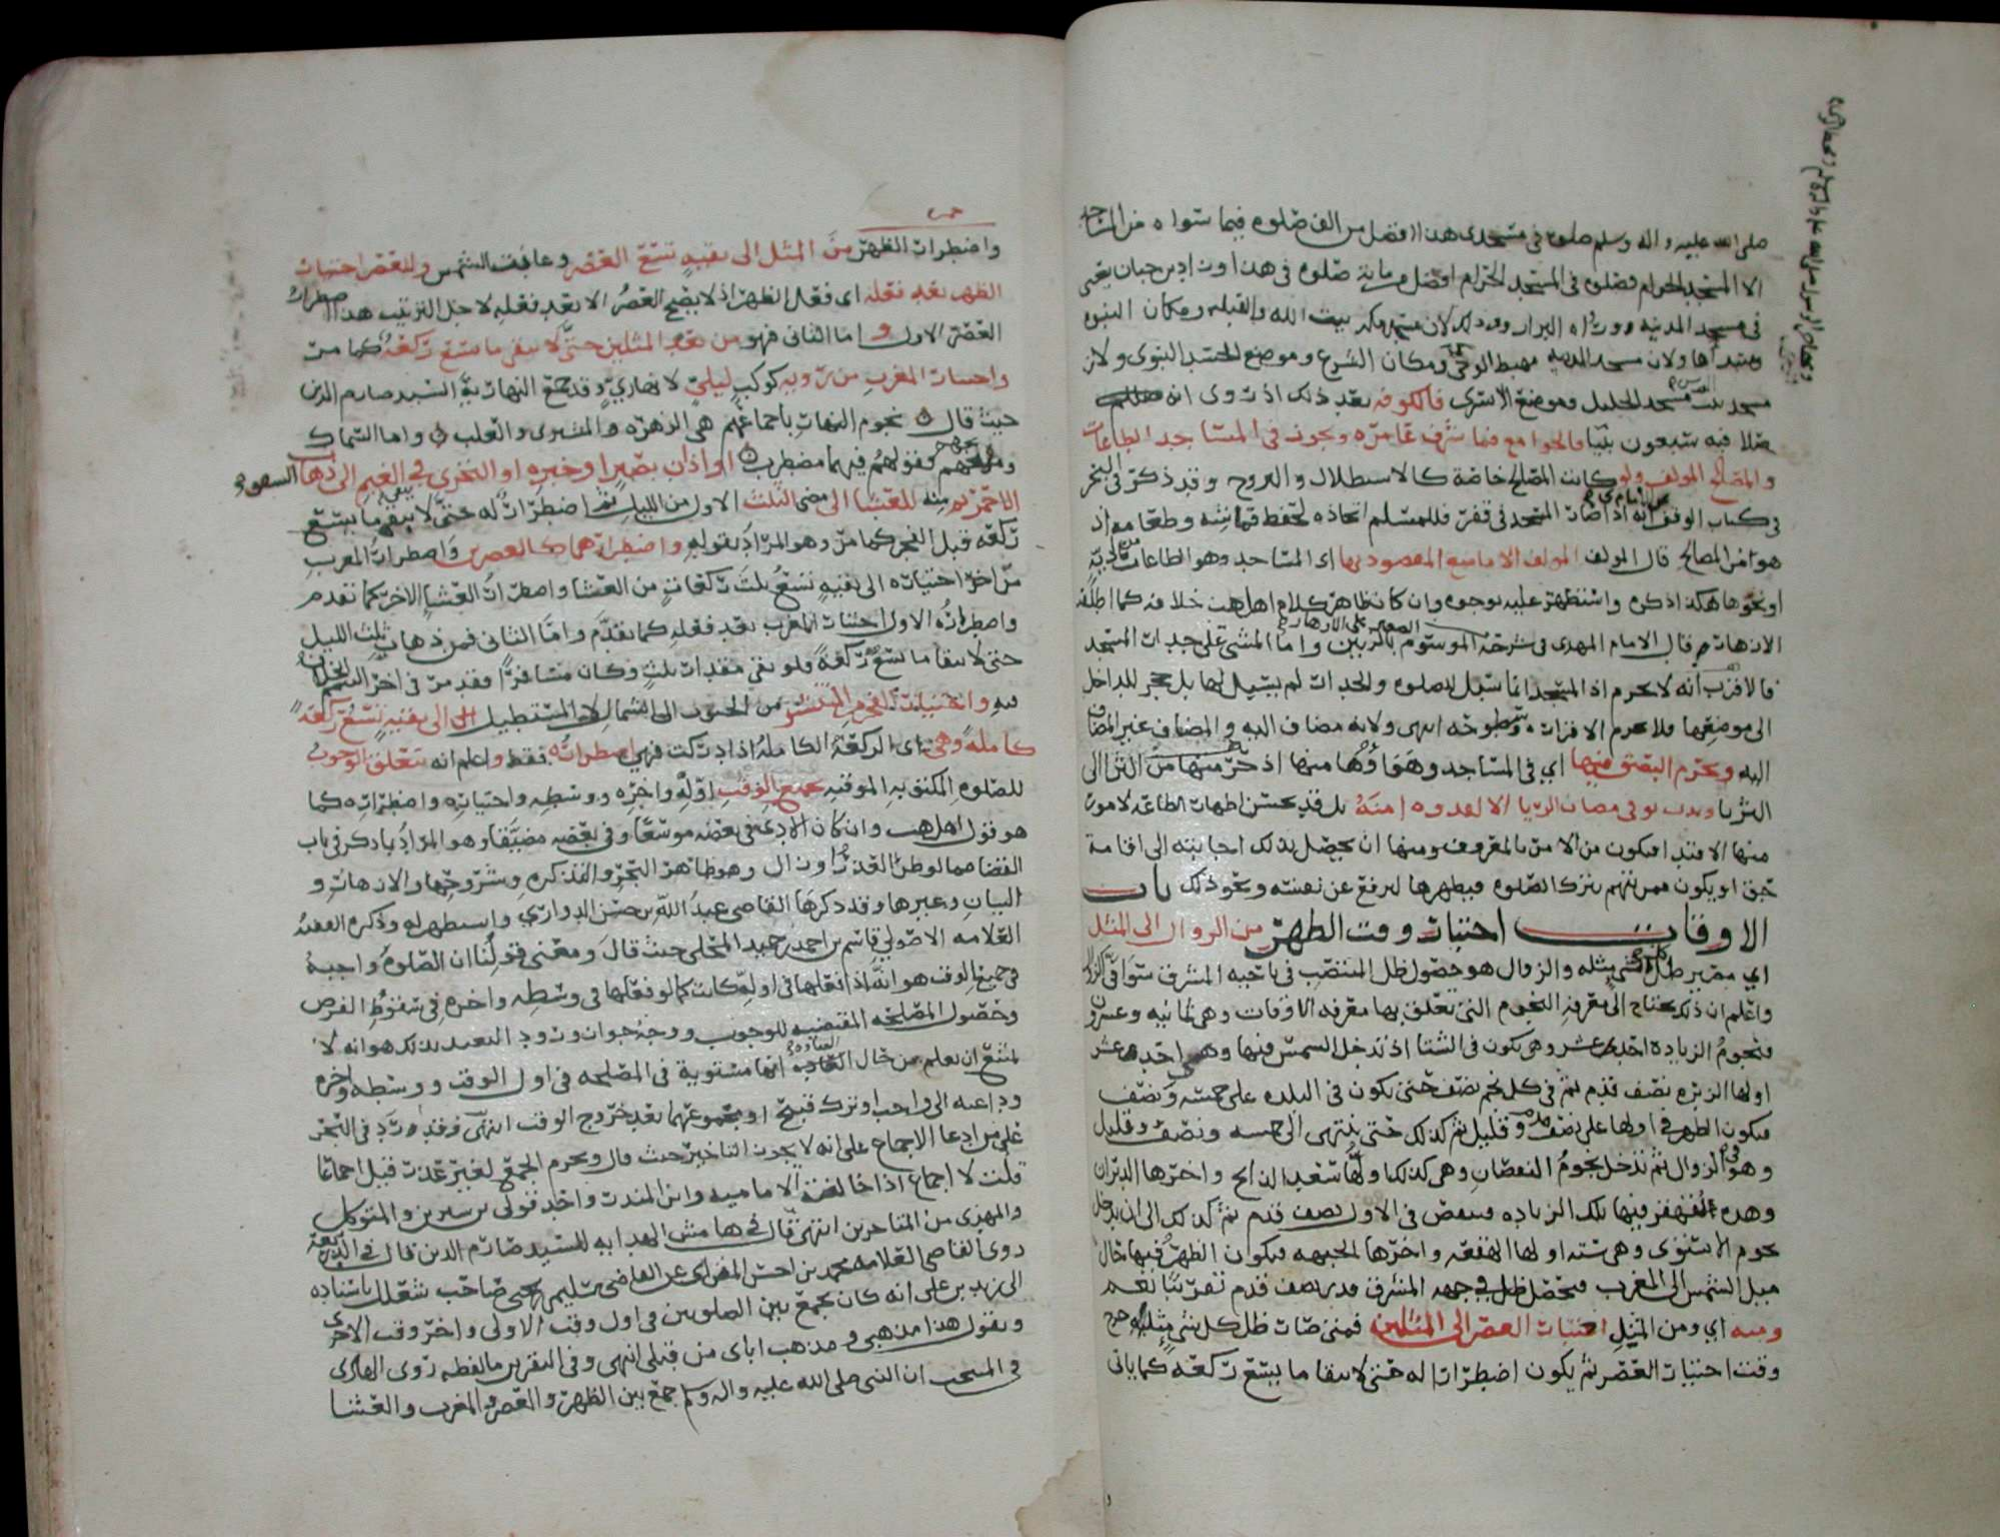 صلى الله عليه واله وسلم صلوه في مسجدي هذا افضل من الف صلوه فيما سواه من المساجد
الا المسجد الحرام فصلوه في المسجد الحرام افضل من مائة صلوه في هذا وزاد بن حبان يعني
في مسجد المدينه ورواه البزار وذلك لان مسجد مكه بيت الله والقبله ومكان النبوه
ومبتداها ولان مسجد المدينه مهبط الوحي ومكان الشرع وموضع الجسد النبوي ولان
مسجد بيت المقدس مسجد الخليل وموضع الاسرى فالكوفه بعد ذلك اذ روى انه
صلا فيه سبعون نبيا فالجوامع فما شرف عامره ويجوز في المساجد الطاعات
والمصالح المولف ولو كانت المصالح خاصة كالاستظلال والتروح وقد ذكر في البحر
في كتاب الوقف انه اذا صار المسجد في قفر فللمسلم اتخاذه لحفظ قماشه وطعامه اذ
هو من المصالح قال المولف الامام مع المقصود بها اي المساجد وهو الطاعات
او نحوها هكذا ذكره واستظهر عليه بوجوه وان كان ظاهر كلام اهل المذهب خلافه كما اطلقه
الازهار قال الامام المهدي في شرحه الموسوم واما المشي على جدرات المسجد
فالاقرب انه لا يحرم اذ المسجد انما سبل للصلوه والجدرات لم يسبل لها بل حجر للداخل
الى موضعها فلا يحرم الاقرار وسطوحه انتهى ولانه مضاف اليه والمضاف غير المضاف
اليه ويحرم البصق فيها اي في المساجد وهواؤها منها اذ حرمتها من الثرا الى
الثريا وندب توقي مضان الريا الا لقدوه امنه بل قد يحسن اظهار الطاعه لامور
منها الاقتدا فيكون من الامر بالمعروف ومنها ان يحصل بذلك اجابته الى اقامة
حق او يكون ممن يتهم بترك الصلوه فيظهرها ليرفع عن نفسه ونحو ذلك باب
الاوقات اختيار وقت الظهر من الزوال الى المثل
اي مصير ظل كل شي مثله والزوال هو حصول ظل المنتصب في ناحيه المشرق
واعلم ان ذلك يحتاج الى معرفه النجوم التي تعلق بها معرفه الاوقات وهي ثمانيه وعشرون
فنجوم الزياده احد عشر وهي تكون في الشتا اذ تدخل الشمس فيها وهي احد عشر
اولها نصف قدم ثم في كل نجم نصف حتى يكون في البلده على خمسه ونصف
فيكون الظهر في اولها على نصف قدم وقليل ثم كذلك حتى ينتهى الى خمسه ونصف وقليل
وهو في الزوال ثم تدخل نجوم النقصان وهي كذلك اولها سعد الذابح واخرها الدبران
وهذه تقهقر فيها تلك الزياده فينقص في الاول نصف قدم ثم كذلك الى ان يدخل
نجوم الاستوى وهي سته اولها الهقعه واخرها الجبهه فيكون الظهر فيها حال
ميل الشمس الى المغرب فيحصل ظل في جهه المشرق قدر نصف قدم تقريبا نعم
ومنه اي ومن المثل اختيار العصر الى المثلين فمتى صار ظل كل شي مثليه خرج
وقت اختيار العصر ثم يكون اضطرارا له حتى لا يبقا ما يسع ركعه كما ياتي
واضطرار الظهر من المثل الى بقيه تسع العصر وعاقبت الشمس وللعصر اختيار
الظهر بعد فعله اي فعل الظهر اذ لا يصح العصر الا بعد فعله لاجل الترتيب هذا اضطرار
العصر الاول واما الثاني فهو من بعد المثلين حتى لا يبقى ما يسع ركعه كما مر
واختيار المغرب من رويه كوكب ليلي لا نهاري وقد جمع النهاريه السيد صارم الدين
حيث قال نجوم النهار باجماعهم هي الزهره والمشتري والعلب واما السماك
ومريخهم فقولهم فيهما مضطرب او اذان بصير او خبره او التحري في الغيم الى ذهاب
الاحمر ومنه للعشا الى مضي الثلث الاول من الليل ثم اضطرار له حتى لا يبقى ما يسع
ركعه قبل الفجر كما مر وهو المراد بقوله واضطرارهما كالعصرين واضطرار المغرب
من اخر اختياره الى بقيه تسع ثلث ركعات من العشا واضطرار العشا الاخر كما تقدم
واضطراره الاول اختيار المغرب بعد فعله كما تقدم واما الثاني فمن ذهاب ثلث الليل
حتى لا يبقا ما يسع ركعة ولو بقي مقدار ثلث وكان مسافرا وقد مر في اخر التيمم الخلاف
فيه واختيار الفجر من المنتشر من الجنوب الى الشمال لا المستطيل الى بقيه تسع ركعة
كاملة وهي اي الركعة الكاملة اذا ادركت فهي اضطراره فقط واعلم انه يتعلق الوجوب
للصلوه المكتوبه الموقته بجميع الوقت اوله واخره ووسطه واختياره واضطراره كما
هو قول اهل المذهب وان كان الاداء في بعضه موسعا وفي بعضه مضيقا وهو المراد بما ذكر في باب
القضا وهو ظاهر البحر والتذكره وشروحها والازهار و
البيان وغيرها وقد ذكرها القاضي عبد الله بن حسن الدواري واستظهر له وذكره الفقيه
العلامه الاصولي قاسم بن احمد بن حميد المحلي حيث قال ومعنى قولنا ان الصلوه واجبة
في جميع الوقت هو انه اذا فعلها في اوله كانت كما لو فعلها في وسطه واخره في سقوط الفرض
وحصول المصلحه المقتضيه للوجوب ووجه جواز ورود التعبد بذلك هو انه لا
يمتنع ان يعلم من حال العباده انها مستوية في المصلحه في اول الوقت ووسطه واخره
وداعيه الى واجب او ترك قبيح او مجموعهما بعد خروج الوقت انتهى وقد رد في البحر
على من ادعا الاجماع على انه لا يجوز التاخير حيث قال ويحرم الجمع لغير عذر قيل اجماعا
قلت لا اجماع اذا خالفت الاماميه وابن المنذر واحد قولي بن سيرين والمتوكل
والمهدي من المتاخرين انتهى قال في هامش الهدايه للسيد صارم الدين قال في
روى القاضي العلامه محمد بن احسن المغربي عن القاضي سليمن بن يحيى صاحب شعلل باسناده
الى زيد بن علي انه كان يجمع بين الصلوتين في اول وقت الاولى واخر وقت الاخرى
ويقول هذا مذهبي ومذهب اباي من قبلي انتهى وفي التقرير ما لفظه روى الهادي
في المنتخب ان النبي صلى الله عليه واله وسلم جمع بين الظهر والعصر والمغرب والعشا